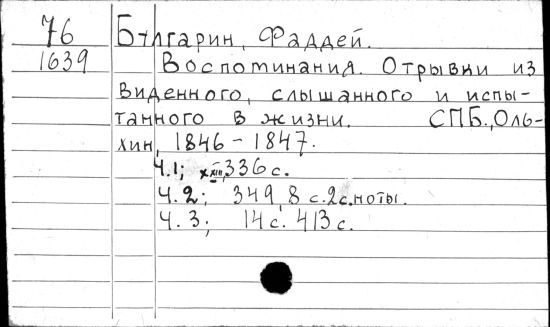 76 Булгарин, Фаддей.
1639 Воспоминания. Отрывки из
виденного, слышанного и испы-
танного в жизни. СПБ., Оль-
хин, 1846 - 1847.
Ч.1; XXIII, 336 с.
Ч.2; 349, 8 с. 2 с. ноты.
Ч.3; 14 с. 413 с.